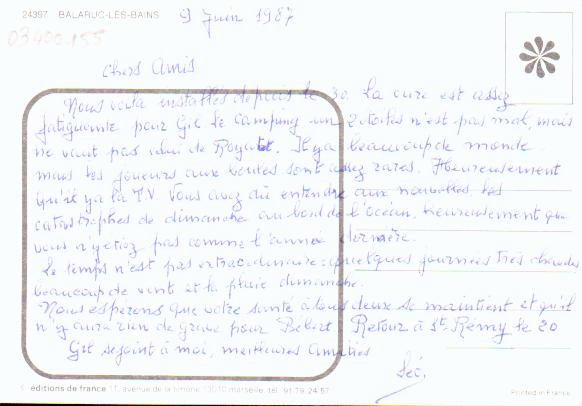 24397 BALARUC-LES-BAINS
9 Juin 1987
03400.155
Chers Amis
Nous voila installés depuis le 30. La cure est assez
fatiguante pour Gil le camping un 2 étoiles n'est pas mal, mais
ne vaut pas celui de Royat. Il y a beaucoup de monde
mais les joueurs aux boules sont assez rares. Heureusement
qu'il y a la T.V. Vous avez dû entendre aux nouvelles les
catastrophes de dimanche au bord de l'océan, heureusement que
vous n'y etiez pas comme l'année dernière.
Le temps n'est pas extraordinaire quelques journées très chaudes
beaucoup de vent et la pluie dimanche.
Nous esperons que votre santé à tous deux se maintient et qu'il
n'y aura rien de grave pour Bébert Retour à St-Rémy le 20
Gil se joint à moi, meilleures Amitiés
éditions de france 11, avenue de la timone, 13010 marseille, tél. 91.79.24.57
Printed in France